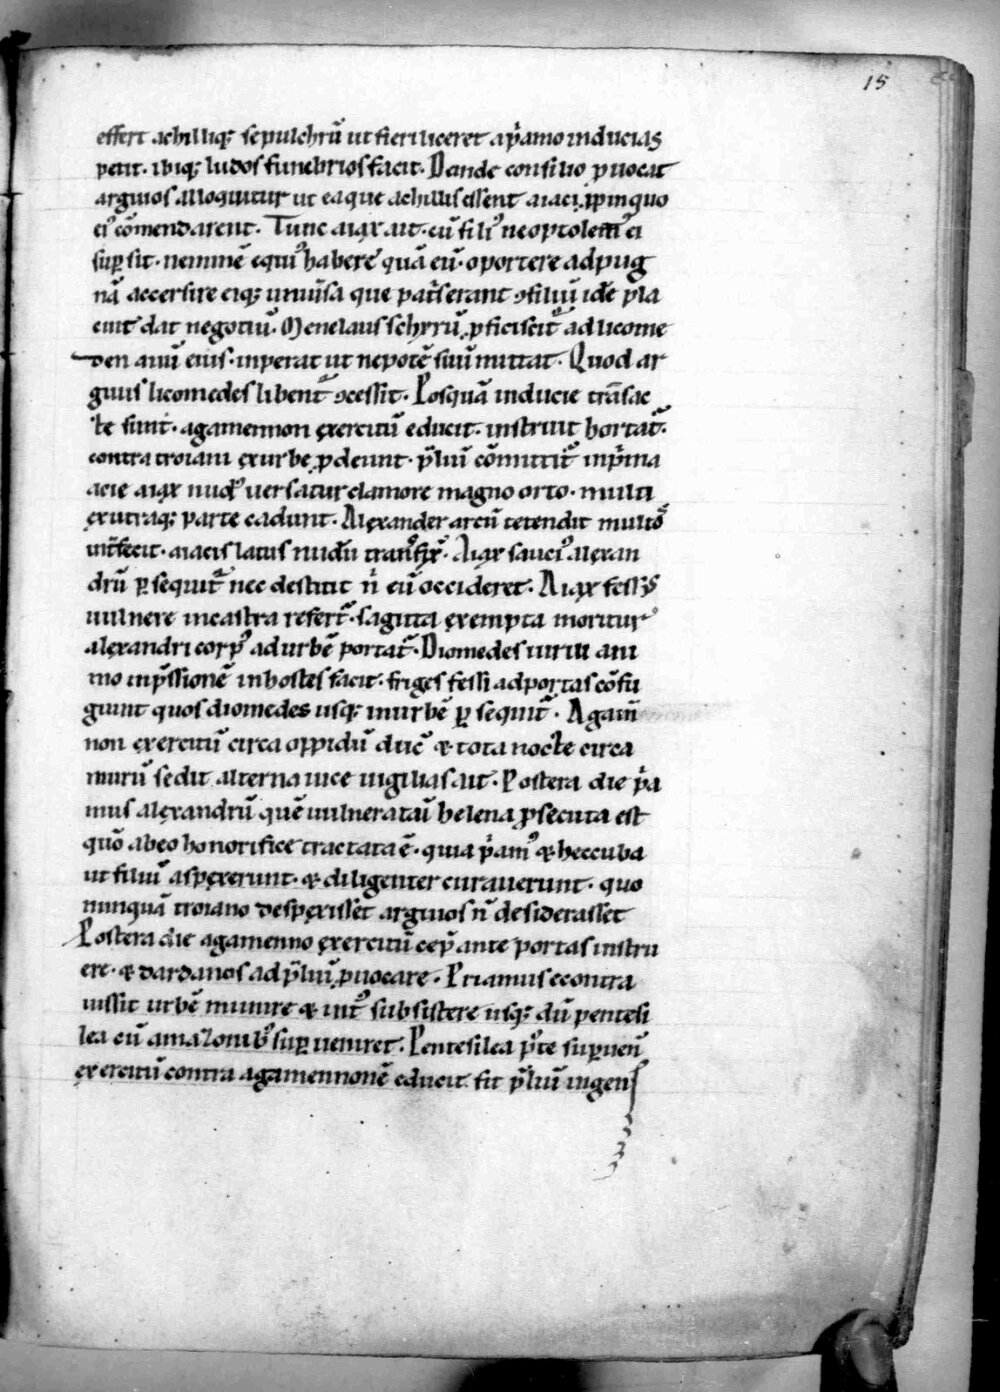 15
effert achilliq; sepulchrū ut fieri liceret a p̄amo inducias
petit· ibiq; ludos funebrios facit· Deinde consilio ꝓuocat
argiuos alloquitur ut ea que achillis essent aiaci ꝓpinquo
ei᷒ cōmendarent· Tunc aiax ait· cū fili᷒ neoptolem᷒ ei
suꝑsit· neminē equi᷒ habere quā eū· oportere ad pug
nā accersire eiq; uniūsa que pat̄s erant ꝯfiliū idē p̄la
cuit dat negotiū· Menelaus schyrū ꝓficiscit̄ ad licome
den auū eius· inperat ut nepotē suū mittat· Quod ar
giuis licomedes libent̄ ꝯcessit· Posquā inducie trāsac
te sunt· agamennon exercitū educit· instruit hortat̄·
contra troiani ex urbe ꝓdeunt· p̄liū cōmittit̄ in p̄ma
acie aiax nud᷒ uersatur clamore magno orto· multi
ex utraq; parte cadunt· Alexander arcū tetendit multos
int̄fecit· aiacis latus nudū transfix̄· Aiax sauci᷒ alexan
drū ꝑsequit̄ nec destitit n̄ eū occideret· Aiax fessus
uulnere in castra refert̄· sagitta exempta moritur
alexandri corp᷒ ad urbē portat̄· Diomedes uirili ani
mo inp̄ssionē in hostes facit· friges fessi ad portas cōfu
giunt quos diomedes usq; in urbē ꝑsequit̄· Agam̄
non exercitū circa oppidū duc̄ & tota nocte circa
murū sedit alterna uice uigilias ait· Postera die p̄a
mus alexandrū quē uulneratū helena ꝓsecuta est
quō ab eo honorifice tractata ē· quia p̄am᷒ & heccuba
ut filiū aspexerunt· & diligenter curauerunt· quo
nunquā troiano despexisset argiuos n̄ desiderasset
Postera die agamenno exercitū cep̄ ante portas instru
ere· & dardanos ad p̄liū ꝓuocare· Priamus econtra
iussit urbē munire & int᷒ subsistere usq; dū pentesi
lea cū amazonib᷒ suꝑueniret· Pentesilea p᷒te suꝑueń
exercitū contra agamennonē educit fit p̄liū ingens